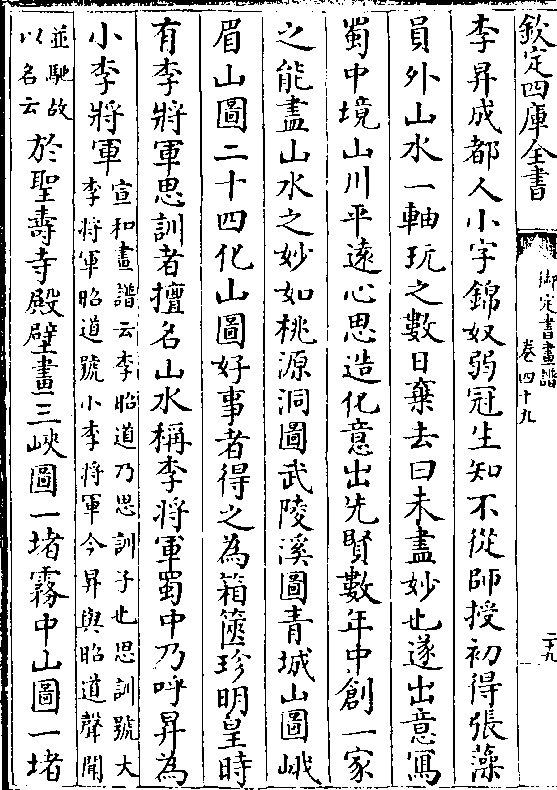 欽定四庫全書
御定書畫譜
卷四十九
二十九
李昇成都人小字錦奴弱冠生知不從師授初得張藻
員外山水一軸玩之數日棄去曰未盡妙也遂出意寫
蜀中境山川平遠心思造化意出先賢數年中創一家
之能盡山水之妙如桃源洞圖武陵溪圖青城山圖峨
眉山圖二十四化山圖好事者得之為箱篋珍明皇時
有李將軍思訓者擅名山水稱李將軍蜀中乃呼昇為
小李將軍
宣和畫譜云李昭道乃思訓子也思訓號大
李將軍昭道號小李將軍今昇與昭道聲聞
並馳故
以名云
於聖壽寺殿壁畫三峽圖一堵霧中山圖一堵